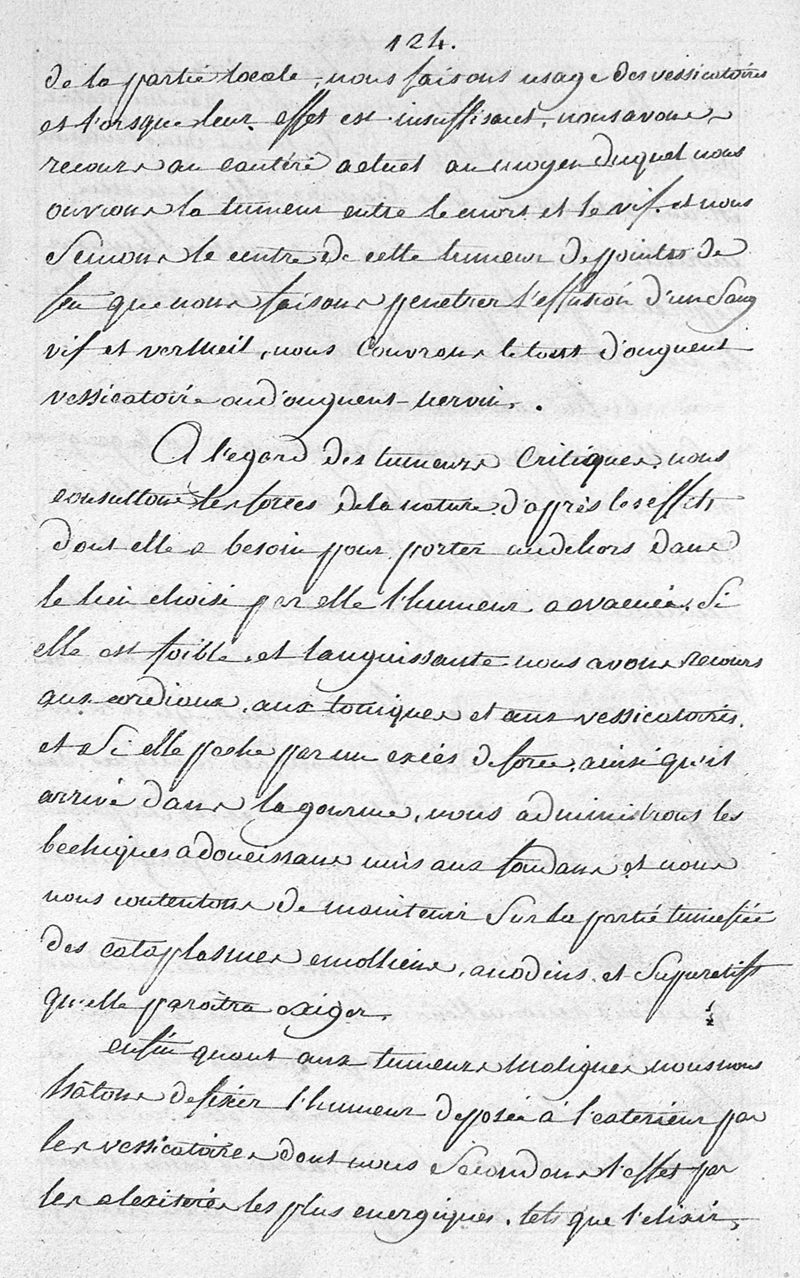 124.
de la partie locale, nous faisons usage des vessicatoires
et lorsque leur effet est insuffisant, nous avons
recours au cautére actuel au moyen duquel nous
ouvrons la tumeur entre le mort et le vif. et nous
Semons le centre de cette tumeur de pointes de
feu que nous faisons penetrer l'effusion d'un Sang
vif et vermeil, nous Couvrons le tout d'onguent
vessicatoire ou d'onguent nervin.
A l'egard des tumeurs Critiques, nous
consultons les forces de la nature d'après les effets
dont elle a besoin pour porter au dehors dans
le lieu choisi par elle l'humeur a evacuée. Si
elle est foible, et languissante nous avons recours
aux cordiaux, aux toniques et aux vessicatoires.
et Si elle peche par un excés de force, ainsi qu'il
arrive dans la gourme, nous administrons les
bechiques adoucissans unis aux fondans et nous
nous contentons de maintenir Sur la partie tumefiée
des cataplasmes emolliens, anodins, et Supuratifs
qu'elle paroitra exiger.
enfin quant aux tumeurs malignes nous nous
hâtons de fixer l'humeur deposée à l'exterieur par
les vessicatoires dont nous Secondons l'effet par
les alexiteres les plus energiques. tels que l'elixir,